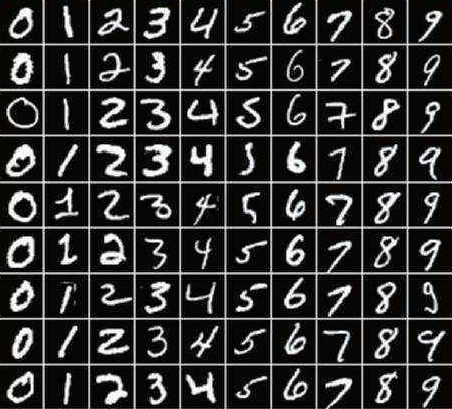 0 1 2 3 4 5 6 7 8 9
0 1 2 3 4 5 6 7 8 9
0 1 2 3 4 5 6 7 8 9
0 1 2 3 4 5 6 7 8 9
0 1 2 3 4 5 6 7 8 9
0 1 2 3 4 5 6 7 8 9
0 1 2 3 4 5 6 7 8 9
0 1 2 3 4 5 6 7 8 9
0 1 2 3 4 5 6 7 8 9